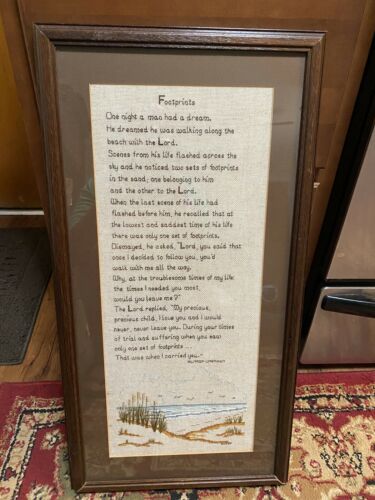 Footprints
One night a man had a dream.
He dreamed he was walking along the
beach with the Lord.
Scenes from his life flashed across the
sky and he noticed two sets of footprints
in the sand; one belonging to him
and the other to the Lord.
When the last scene of his life had
flashed before him, he recalled that at
the lowest and saddest time of his life
there was only one set of footprints.
Dismayed, he asked, "Lord, you said that
once I decided to follow you, you'd
walk with me all the way.
Why, at the troublesome times of my life
the times I needed you most,
would you leave me?"
The Lord replied, "My precious,
precious child, I love you and I would
never, never leave you. During your times
of trial and suffering when you saw
only one set of footprints ...
That was when I carried you."
AUTHOR UNKNOWN